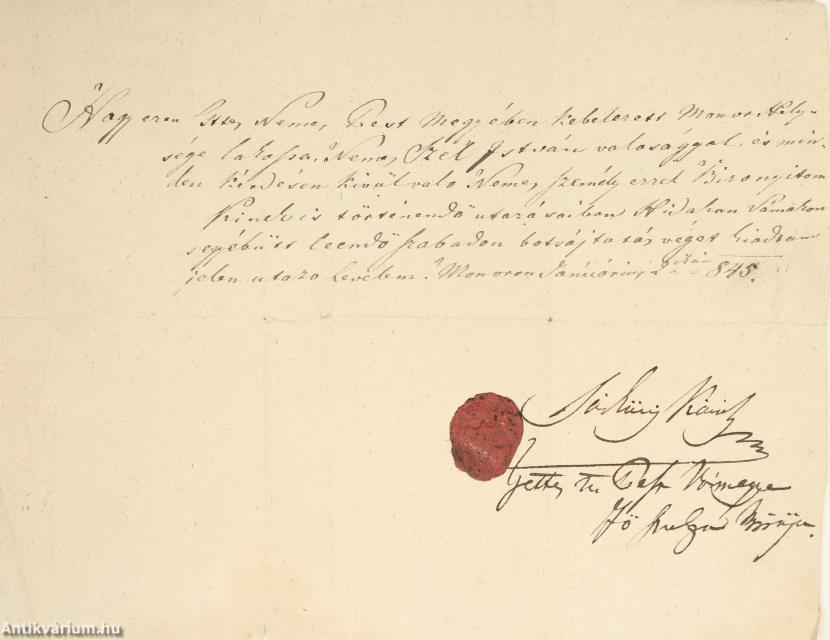 Hogy ezen Ttes Nemes Pest Megyében kebelezett Monor Hely-
sége lakossa Nemes Szél István valosággal és min-
den kérdésen kivül való Nemes személy erről Bizonyitom
Kinek is történendő utazásaiban Hidakon Vámokon
s egyébütt leendő szabadon botsájtatás véget kiadtam
jelen utazo levelem. Monoron Januárius 2 845.
Károly
Ttes Pest Vármegye
Fő szolga Birája.
Antikvárium.hu